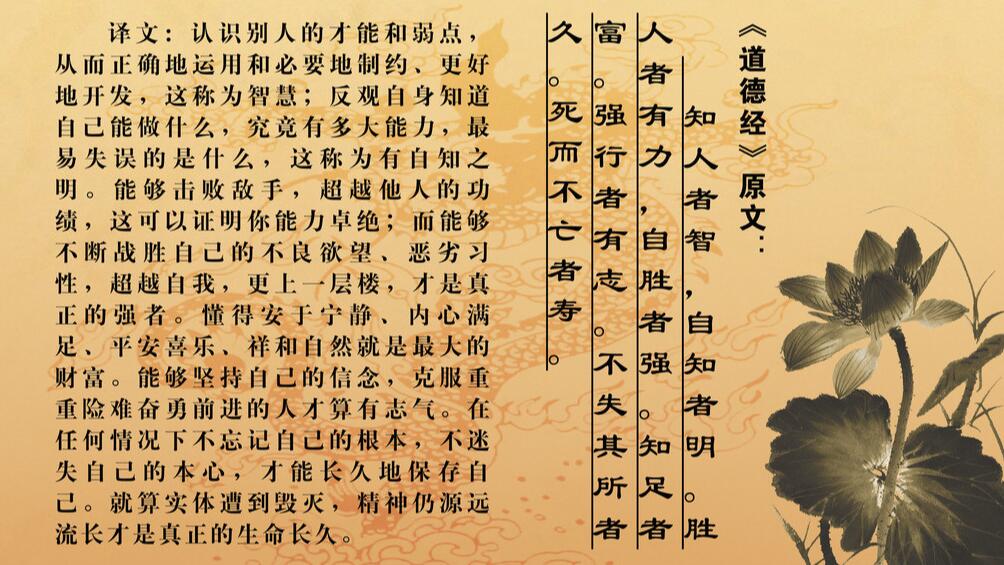 《道德经》原文：
知人者智，自知者明。胜
人者有力，自胜者强。知足者
富。强行者有志。不失其所者
久。死而不亡者寿。
译文：认识别人的才能和弱点，
从而正确地运用和必要地制约、更好
地开发，这称为智慧；反观自身知道
自己能做什么，究竟有多大能力，最
易失误的是什么，这称为有自知之
明。能够击败敌手，超越他人的功
绩，这可以证明你能力卓绝；而能够
不断战胜自己的不良欲望、恶劣习
性，超越自我，更上一层楼，才是真
正的强者。懂得安于宁静、内心满
足、平安喜乐、祥和自然就是最大的
财富。能够坚持自己的信念，克服重
重险难奋勇前进的人才算有志气。在
任何情况下不忘记自己的根本，不迷
失自己的本心，才能长久地保存自
己。就算实体遭到毁灭，精神仍源远
流长才是真正的生命长久。